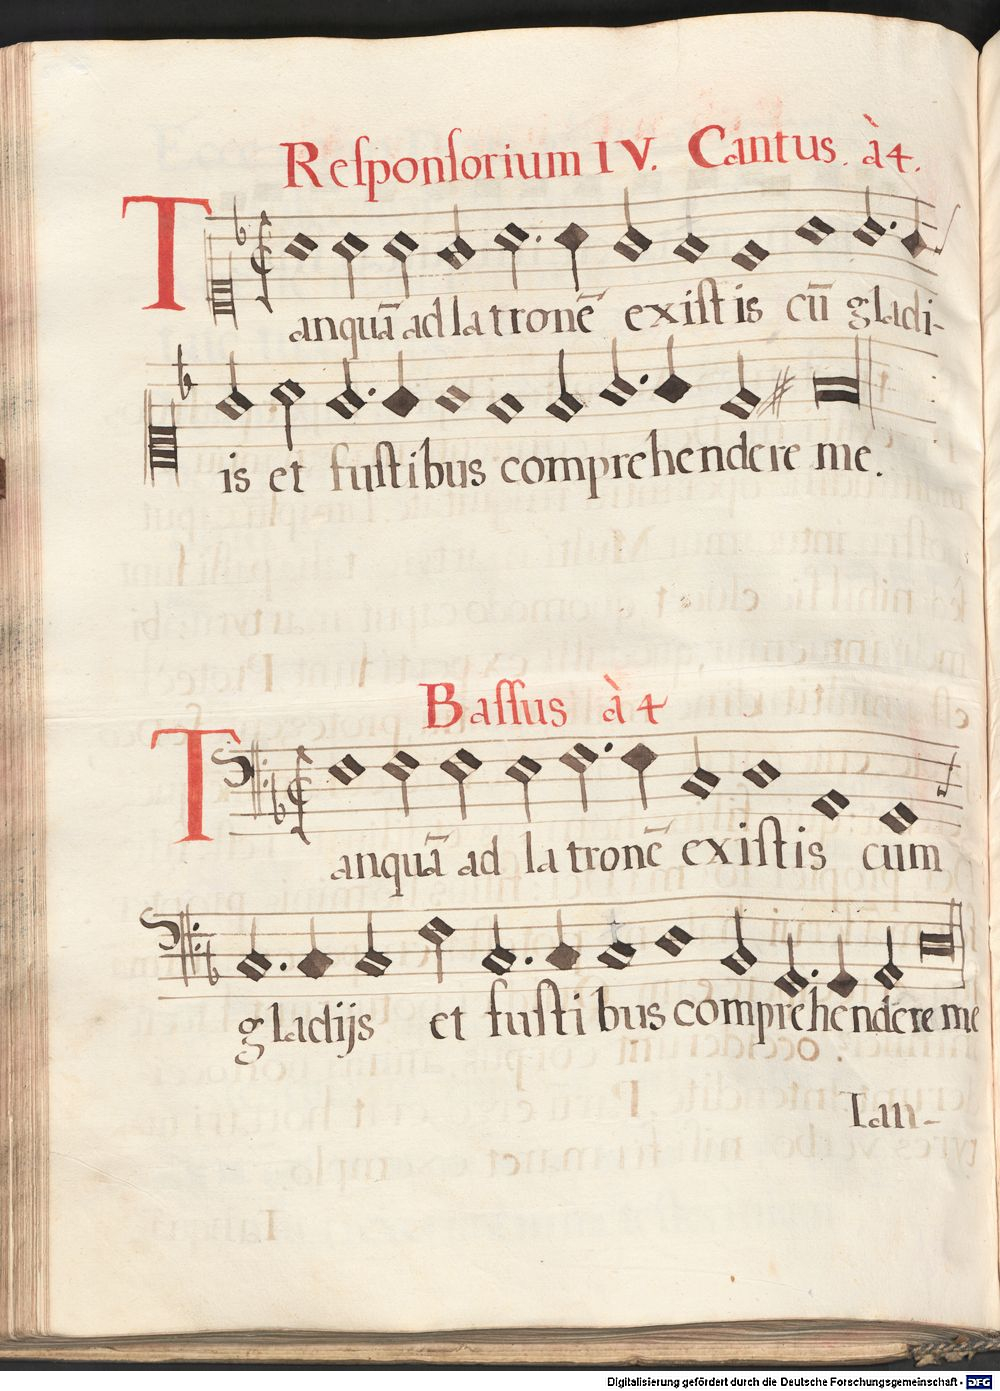 Reſponſorium IV. Cantus. à 4.
Tanquā ad latronē exiſtis cū gladi-
is et fuſtibus comprehendere me.
Baſſus à 4
Tanquā ad latronē exiſtis cum
gladijs et fuſtibus comprehendere me
Tan-
Digitalisierung gefördert durch die Deutsche Forschungsgemeinschaft - DFG